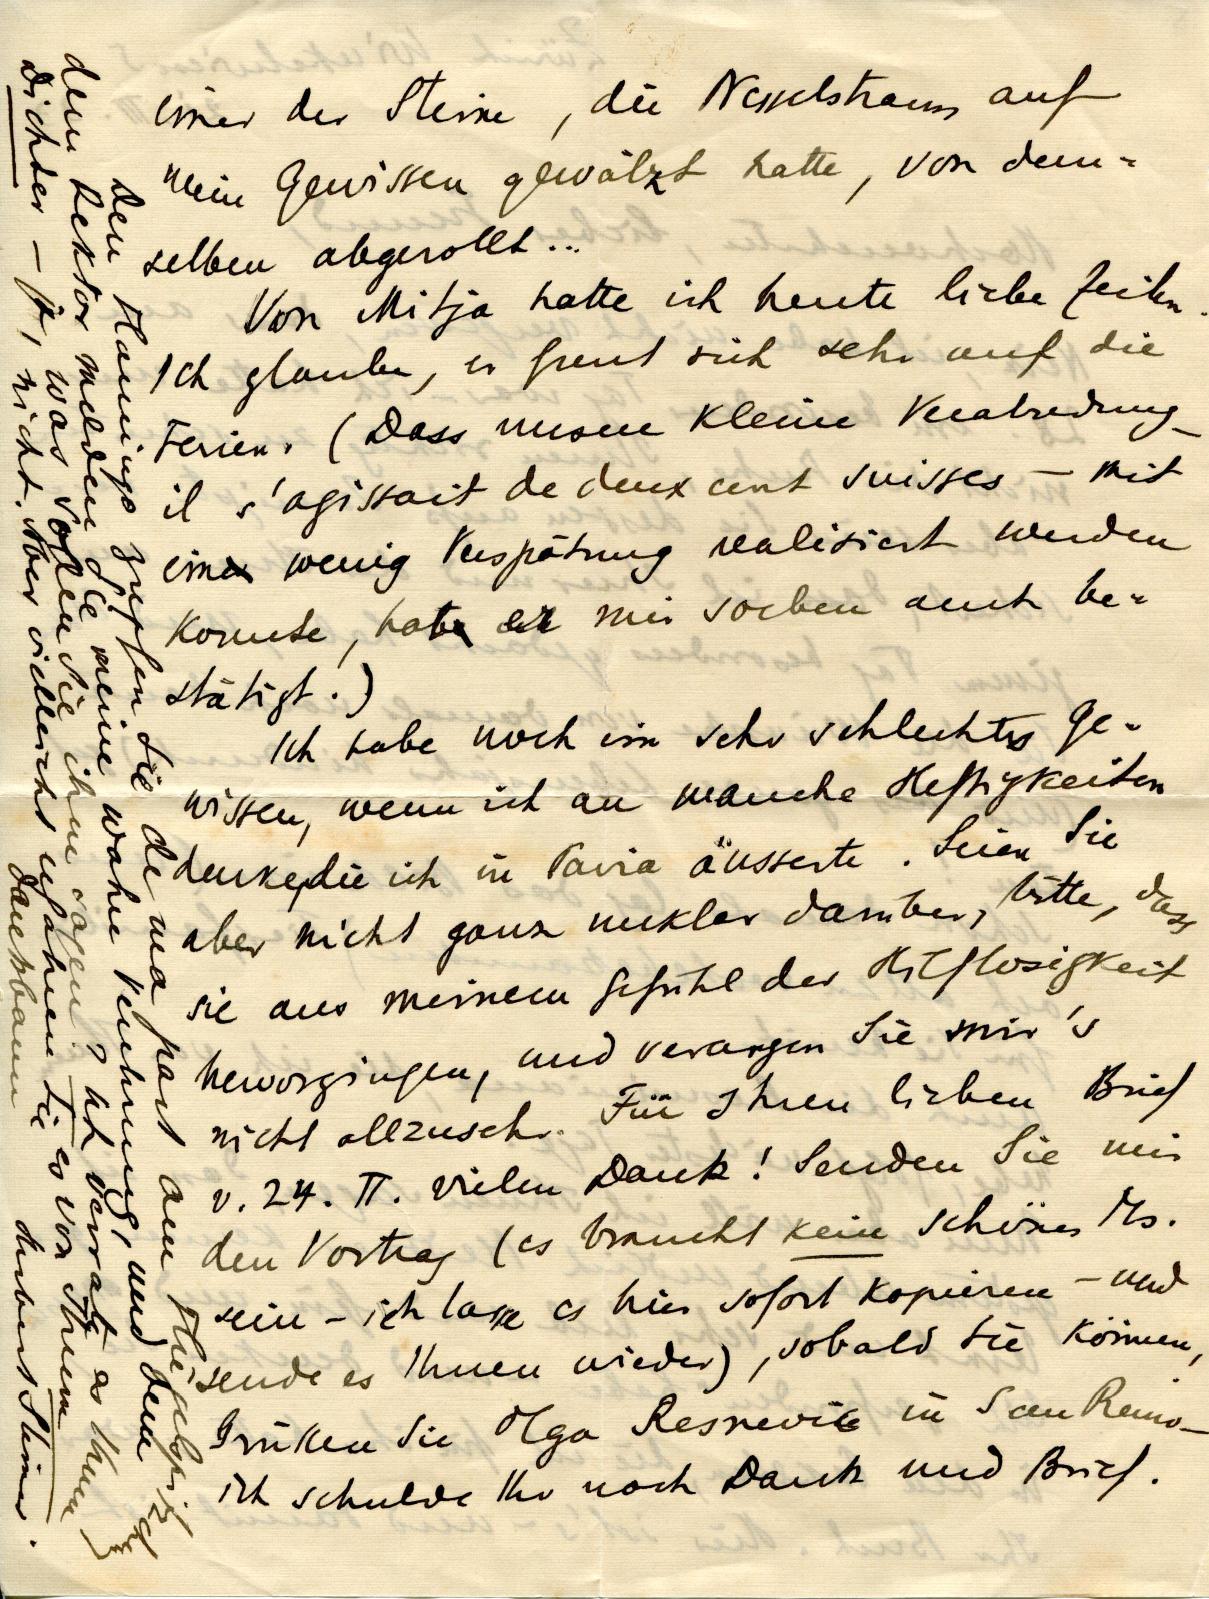 einer der Steine, die Nesselstrauss auf
mein Gewissen gewälzt hatte, von dem-
selben abgerollt...
Von Mitja hatte ich heute liebe Zeilen.
Ich glaube, er freut sich sehr auf die
Ferien. (Dass unsere kleine Verabredung –
il s'agissait de deux cent suisses – mit
ein wenig Verspätung realisiert werden
konnte, hat er mir soeben auch be-
stätigt.)
Ich habe noch ein sehr schlechtes Ge-
wissen, wenn ich an manche Heftigkeiten
denke, die ich in Pavia äusserte. Seien Sie
aber nicht ganz unklar darüber, bitte, dass
sie aus meinem Gefühl der Hilflosigkeit
hervorgingen, und verargen Sie mir's
nicht allzusehr. Für Ihren lieben Brief
v. 24. II. vielen Dank! Senden Sie mir
den Vortrag (es braucht kein schönes Ms.
sein – ich lasse es hier sofort kopieren – und
sende es Ihnen wieder), sobald Sie können,
Grüßen Sie Olga Resnevic in San Remo –
ich schulde Ihr noch Dank und Brief.
Den Flamingo zupfen Sie de ma part am
dem Rektor melden Sie meine wahre Verehrung, und dem
Dichter – ja, was sollen Sie ihm sagen? Ich verrate es Ihnen
nicht. Aber vielleicht erfahren Sie es von Ihrem
dankbaren Herbert Steiner.